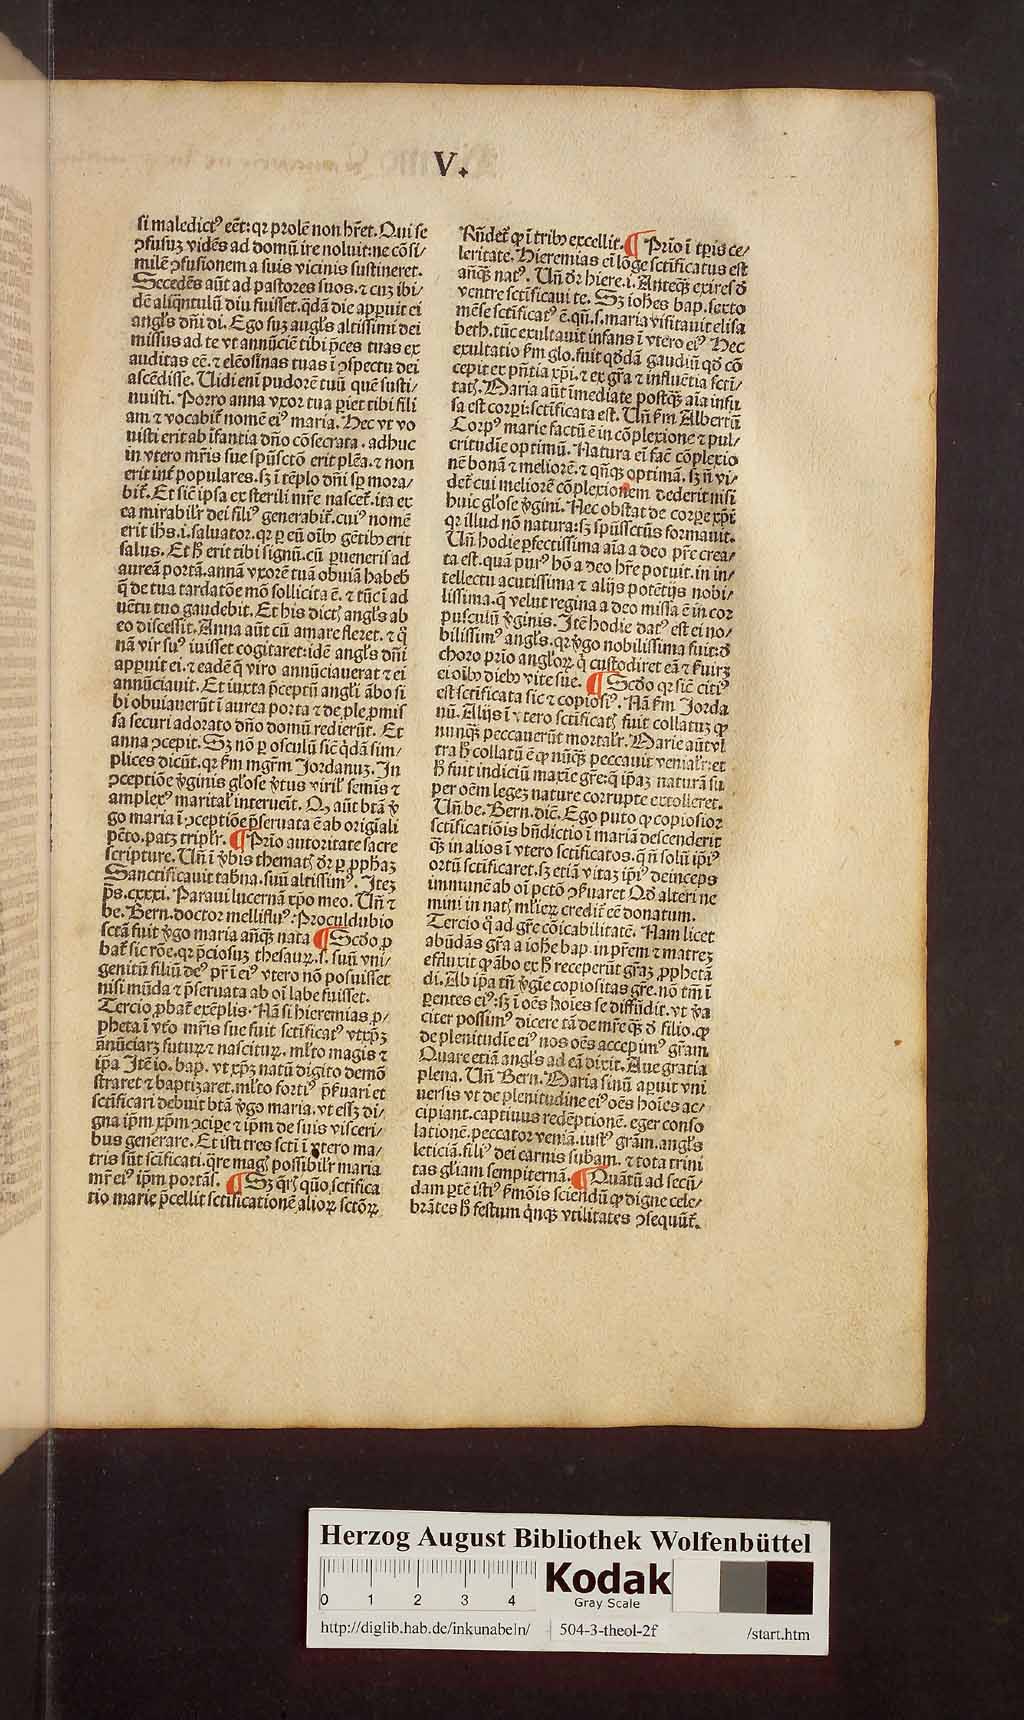 V.
si maledictꝰ eēt: qꝛ prolē non hr̄et. Qui se
ꝯfusuꝫ vidēs ad domū ire noluit: ne cōsi/
milē ꝯfusionem a suis vicinis sustineret.
Secedēs aūt ad pastores suos. ⁊ cuꝫ ibi/
dē aliqͣntulū diu fuisset. qͣdā die apꝑuit ei
angl̄s dn̄i di. Ego suꝫ augl̄s altissimi dei
missus ad te vt annūciē tibi p̄ces tuas ex
auditas eē. ⁊ elēosinas tuas ī ꝯspectu dei
ascēdisse. Uidi eni pudorē tuū quē susti/
nuisti. Porro anna vxor tua pariet tibi fili
am ⁊ vocabit̄ nomē eiꝰ maria. Hec vt vo
uisti erit ab īfantia dn̄o cōsecrata. adhuc
in vtero mr̄is sue spūsctō erit plēa. ⁊ non
erit int̄ populares. sꝫ ī tēplo dn̄i sꝑ mora/
bit̄. Et sic̄ ipsa ex sterili mr̄e nascet̄. ita ex
ea mirabilr̄ dei filiꝰ generabit̄. cuiꝰ nomē
erit ihs. i. saluator. qꝛ ꝑ eū oībꝰ gētibꝰ erit
salus. Et hͦ erit tibi signū. cū ꝑueneris ad
aureā portā. annā vxorē tuā obuiā habebꝫ
q̄ de tua tardatōe mō sollicita ē. ⁊ tūc ī ad
uētu tuo gaudebit. Et his dictꝭ angl̄s ab
eo discessit. Anna aūt cū amare fleret. ⁊ qͦ
nā vir suꝰ iuisset cogitaret: idē angl̄s dn̄i
apꝑuit ei. ⁊ eadē q̄ viro annūciauerat ⁊ ei
annūciauit. Et iuxta p̄ceptū angl̄i ābo si
bi obuiauerūt ī aurea porta ⁊ de ple ꝓmis
sa securi adorato dn̄o domū redierūt. Et
anna ꝯcepit. Sꝫ nō ꝑ osculū sic̄ qͥdā sim/
plices dicūt. qꝛ ẜm mgr̄m Jordanuꝫ. In
ꝯceptiōe v̄ginis gl̄ose v̄tus viril̄ semīs ⁊
amplexꝰ marital̄ interueīt. Qꝫ aūt btā v̄
go maria ī ꝯceptiōe p̄seruata ē ab origīali
pctō. patꝫ triplr̄. ¶ Prīo autoritate sacre
scripture. Un̄ ī v̄bis thematꝭ dr̄ ꝑ ꝓphaꝫ
Sanctificauit tabn̄a. suū altissimꝰ. Iteꝫ
ps̄. cxxxi. Paraui lucernā xp̄o meo. Un̄ ⁊
be. Bern. doctor mellifluꝰ: Proculdubio
sctā fuit v̄go maria añqꝫ nata ¶ Scd̄o ꝓ
bat̄ sic rōe. qꝛ p̄ciosuꝫ thesauꝝ. s. suū vni/
genitū filiū deꝰ pr̄ ī eiꝰ vtero nō posuisset
nisi mūda ⁊ p̄seruata ab oī labe fuisset.
Tercio ꝓbat̄ exēplis. Nā si hieremias ꝓ/
pheta ī vto mr̄is sue fuit sctīficatꝰ vt xp̄ꝫ
ānūciarꝫ futuꝝ ⁊ nascituꝝ. ml̄to magis ⁊
ip̄a Itē io. bap. vt xp̄ꝫ natū digito demō
straret ⁊ baptizaret. ml̄to fortiꝰ p̄ẜuari et
sctīficari debuit btā v̄go maria. vt essꝫ di/
gna ip̄m xp̄m ꝯcipe ⁊ ip̄m de suis visceri/
bus generare. Et isti tres scti ī vtero ma/
tris sūt sctificati. qr̄e magꝭ possibilr̄ maria
mr̄ eiꝰ ip̄m portās. ¶ Sꝫ qr̄ꝭ quō sctifica
tio marie p̄cellit sctificationē alioꝝ sctōꝝ
Rn̄det̄ ꝙ ī tribꝰ excellit. ¶ Prīo ī tp̄is ce/
leritate. Hieremias ei lōge sctificatus est
añqꝫ natꝰ. Un̄ dr̄ hiere. i. Anteqꝫ exires d̄
ventre sctificaui te. Sꝫ iohes bap. sexto
mēse sctificatꝰ ē. qn̄. s. maria visitauit elisa
beth. tūc exultauit infans ī vtero eiꝰ Hec
exultatio ẜm glo. fuit qd̄dā gaudiū qd̄ cō
cepit ex pn̄tia xp̄i. ⁊ ex gr̄a ⁊ influētia scti/
tatꝭ. Maria aūt īmediate postqꝫ aīa infu
sa est corpi: sctificata est. Un̄ ẜm Albertū
Corpꝰ marie factū ē in cōplexione ⁊ pul/
critudīe optimū. Natura eī fac̄ cōplexio
nē bonā ⁊ meliorē. ⁊ qn̄qꝫ optimā. sꝫ ñ vi/
det̄ cui meliorē cōplexionem dederit nisi
huic gl̄ose v̄gini. Nec obstat de corꝑe xp̄i
qꝛ illud nō natura: sꝫ spūssctūs formauit.
Un̄ hodie ꝑfectissima aīa a deo pr̄e crea/
ta est. quā purꝰ hō a deo hr̄e potuit. in in/
tellectu acutissima ⁊ alijs potētijs nobi/
lissima. q̄ velut regina a deo missa ē in cor
pusculū v̄ginis. Itē hodie datꝰ est ei no/
bilissimꝰ angl̄s. qꝛ v̄go nobilissima fuit: d̄
choro prīo angl̄oꝝ. qͥ custodiret eā ⁊ ẜuirꝫ
ei oībꝰ diebꝰ vite sue. ¶ Scd̄o qꝛ sic̄ citiꝰ
est sctificata sic ⁊ copiosiꝰ. Nā ẜm Jorda
nū. Alijs ī vtero sctificatꝭ fuit collatuꝫ ꝙ
nunqꝫ peccauerūt mortalr̄. Marie aūt vl
tra hͦ collatū ē ꝙ nūqꝫ peccauit venialr̄: et
hͦ fuit indiciū maxīe gr̄e: q̄ ip̄aꝫ naturā su
per oēm legeꝫ nature corrupte extolleret.
Un̄ be. Bern. dic̄. Ego puto ꝙ copiosior
sctificatiōis bn̄dictio ī mariā descenderit
qꝫ in alios ī vtero sctificatos. q̄ ñ solū ip̄iꝰ
ortū sctificaret. sꝫ etiā vitaꝫ ip̄iꝰ deinceps
immunē ab oī pctō ꝯẜuaret Qd̄ alteri ne
mini in natꝭ mlieꝝ credit̄ eē donatum.
Tercio qͦ ad gr̄e cōicabilitatē. Nam licet
abūdās gr̄a a iohe bap. in pr̄em ⁊ matreꝫ
effluxit ꝙ ābo ex hͦ receperūt gr̄aꝫ ꝓphetā
di. Ab ip̄a tn̄ v̄gīe copiositas gr̄e. nō tm̄ ī
ꝑentes eiꝰ: sꝫ ī oēs hoīes se diffūdit. vt v̄a
citer possimꝰ dicere tā de mr̄e qꝫ d̄ filio. ꝙ
de plenitudīe eiꝰ nos oēs accepimꝰ gr̄am
Quare etiā angl̄s ad eā dixit. Aue gratia
plena. Un̄ Bern. Maria sinū aꝑuit vni
uersis vt de plenitudine eiꝰ oēs hoīes ac/
cipiant. captiuus redēptionē. eger conso
lationē. peccator veniā. iustꝰ gr̄am. angl̄s
leticiā. filiꝰ dei carnis subam. ⁊ tota trini
tas gl̄iam sempiternā. ¶ Quātū ad secū/
dam ꝑtē istiꝰ ẜmōis sciendū ꝙ digne cele/
brātes hͦ festum qͥnqꝫ vtilitates ꝯsequūt̄.
Herzog August Bibliothek Wolfenbüttel
0 1 2 3 4
Kodak
Gray Scale
http://diglib.hab.de/inkunabeln/ 504-3-theol-2f /start.htm